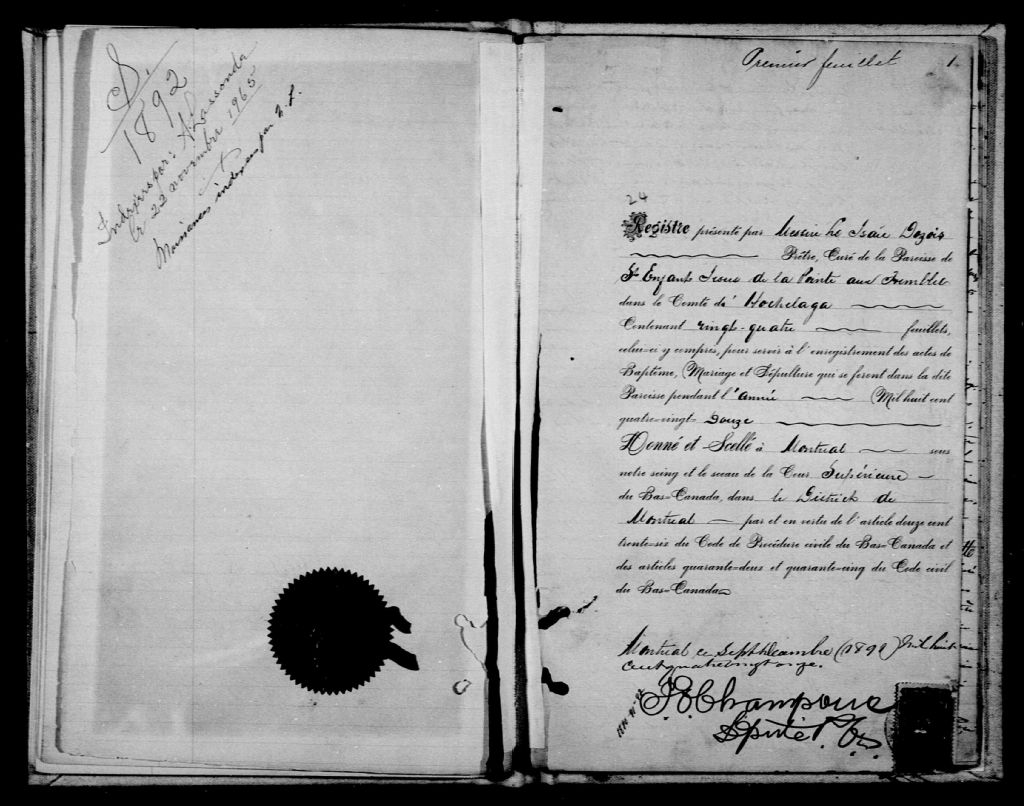 S.
1892
Indexé par: A Lassonde
le 22 novembre 1965
Naissances indexées par
Premier feuillet 1.
24
Registre présenté par Messire Isaïe Gezois
Prêtre, Curé de la Paroisse de
St Enfant Jesus de la Pointe aux Trembles
dans le Comté de Hochelaga
Contenant vingt-quatre feuillets,
celui-ci y compris, pour servir à l'enregistrement des actes de
Baptême, Mariage et Sépulture qui se feront dans la dite
Paroisse pendant l'année Mil huit cent
quatre-vingt douze
Donné et Scellé à Montreal sous
notre seing et le sceau de la Cour Supérieure
du Bas-Canada, dans le District de
Montreal par et en vertu de l'article douze cent
trente-six du Code de Procédure civile du Bas-Canada et
des articles quarante-deux et quarante-cinq du Code civil
du Bas-Canada
Montreal ce sept Décembre (1891) Mil huit
cent quatrevingt onze.
Champoux
Député P.